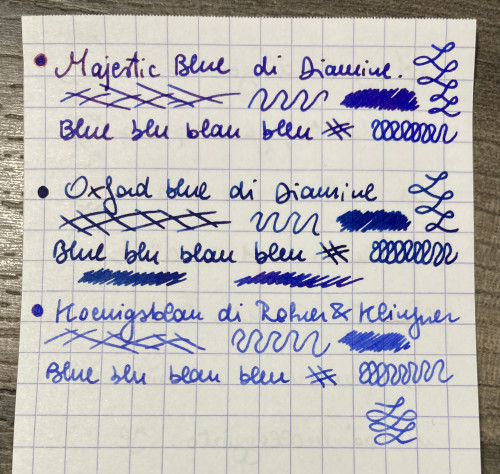 Majestic Blue di Diamine.
Blue blu blau bleu
Oxford blue di Diamine
Blue blu blau bleu
Koenigsblau di Rohrer & Klingner
Blue blu blau bleu